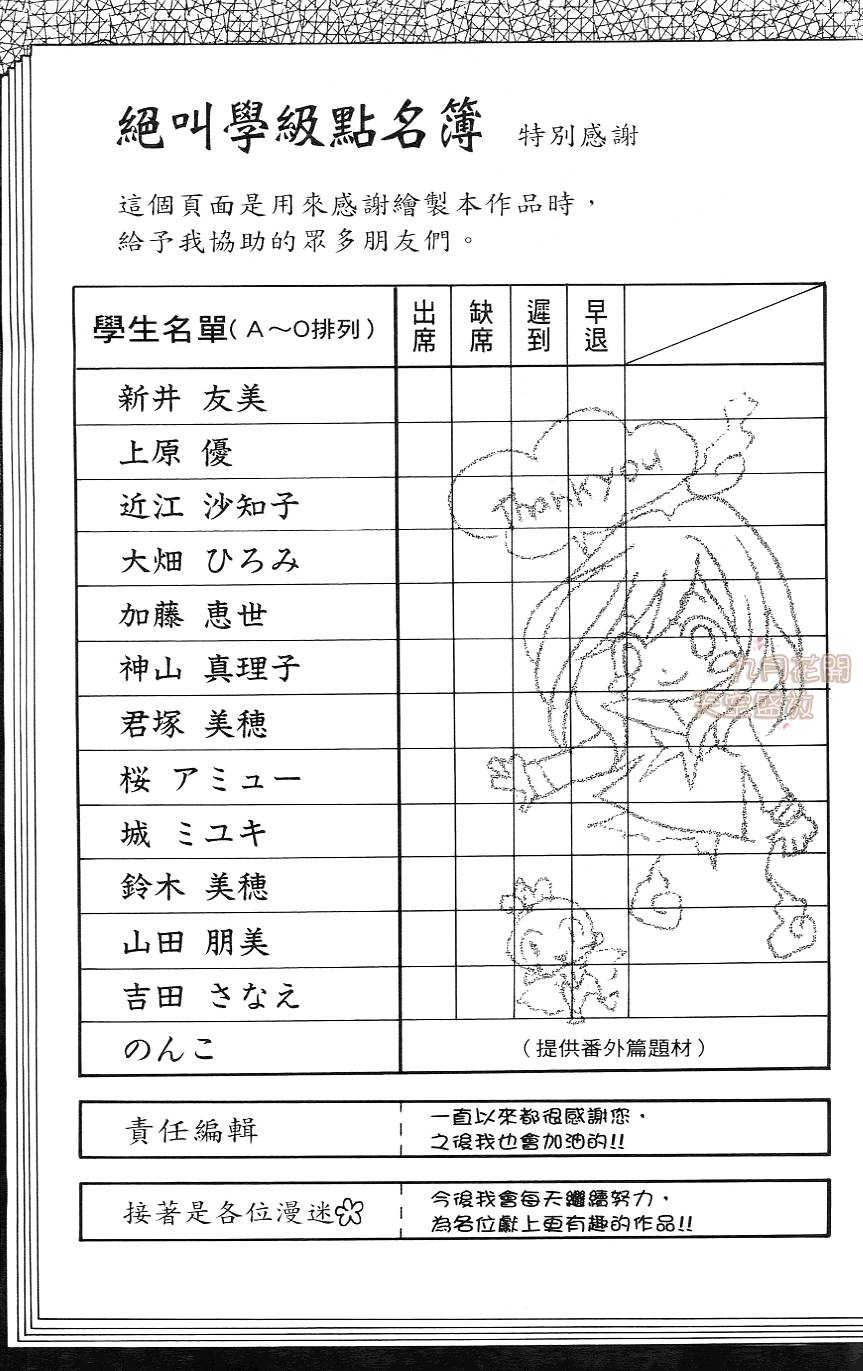 絕叫學級點名簿 特別感謝
這個頁面是用來感謝繪製本作品時，
給予我協助的眾多朋友們。
學生名單(A～O排列) 出席 缺席 遲到 早退
新井 友美
上原 優
近江 沙知子
大畑 ひろみ
加藤 恵世
神山 真理子
君塚 美穂
桜 アミュー
城 ミユキ
鈴木 美穂
山田 朋美
吉田 さなえ
のんこ (提供番外篇題材)
Thank you
九月花開
天空盛放
責任編輯
一直以來都很感謝您，
之後我也會加油的!!
接著是各位漫迷
今後我會每天繼續努力，
為各位獻上更有趣的作品!!